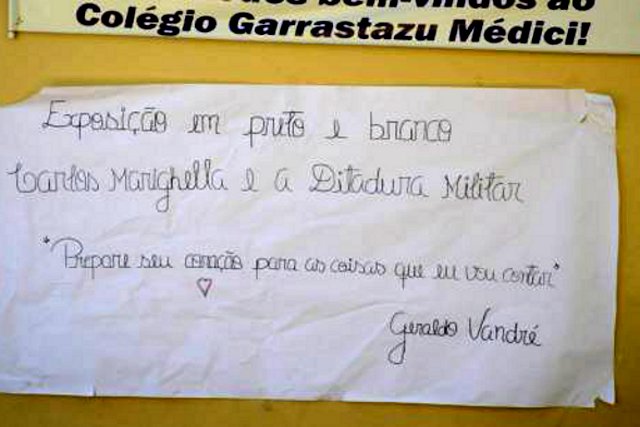 bem-vindos ao
Colégio Garrastazu Médici!
Exposição em preto e branco
Carlos Marighella e a Ditadura Militar
"Prepare seu coração para as coisas que eu vou contar"
Geraldo Vandré